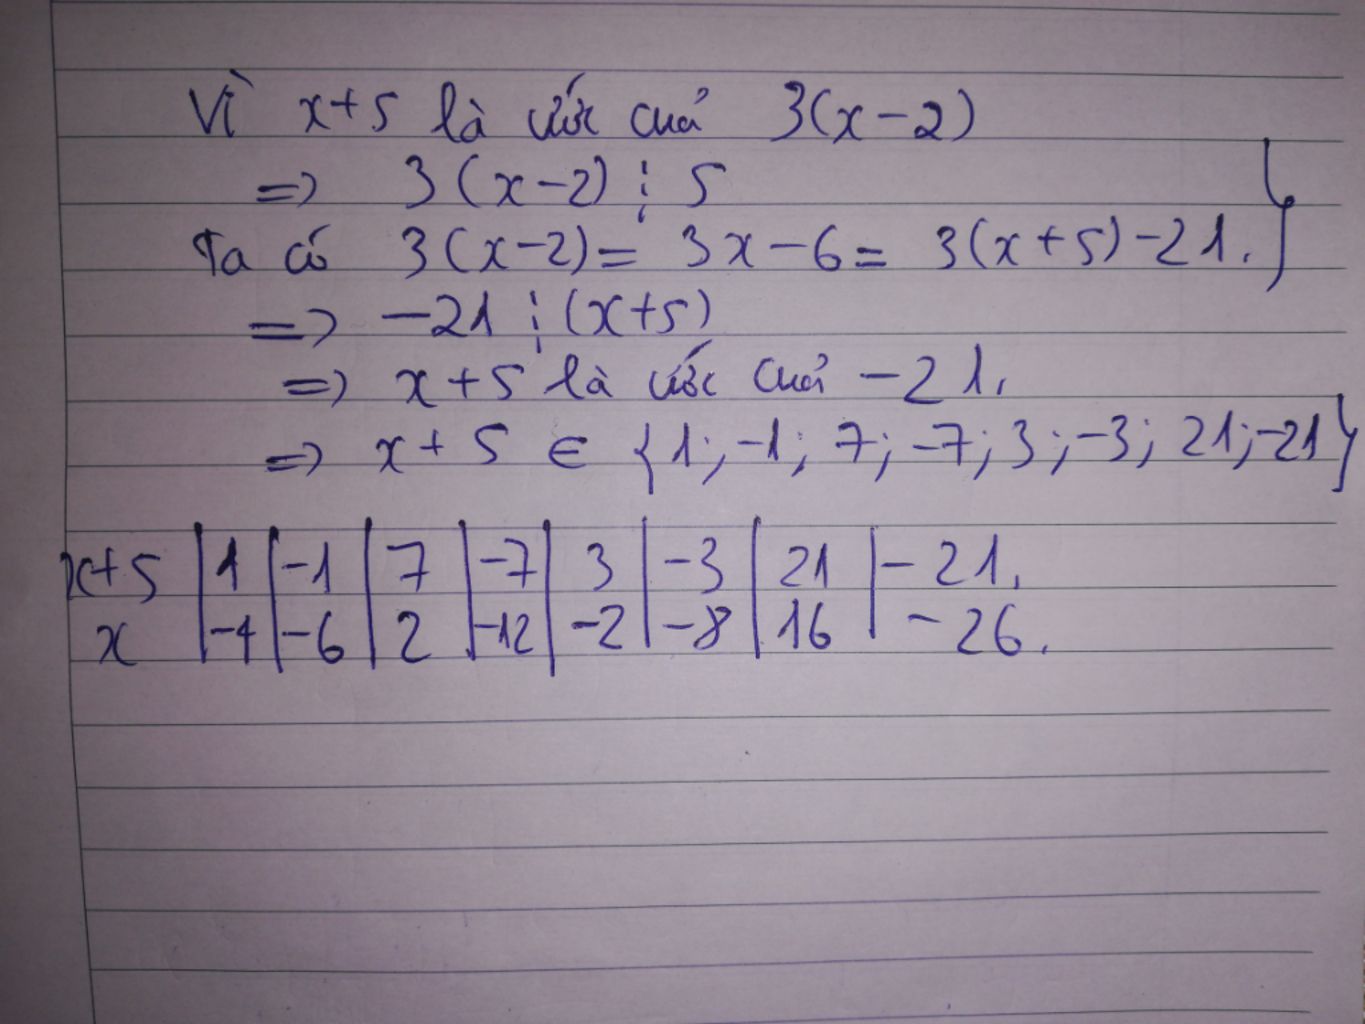 Vì x+5 là ước của 3(x-2)
=> 3(x-2) ⋮ 5
Ta có 3(x-2) = 3x-6 = 3(x+5)-21. }
=> -21 ⋮ (x+5)
=> x+5 là ước của -21.
=> x+5 ∈ {1; -1; 7; -7; 3; -3; 21; -21}
x+5 | 1 | -1 | 7 | -7 | 3 | -3 | 21 | -21.
x | -4 | -6 | 2 | -12 | -2 | -8 | 16 | -26.